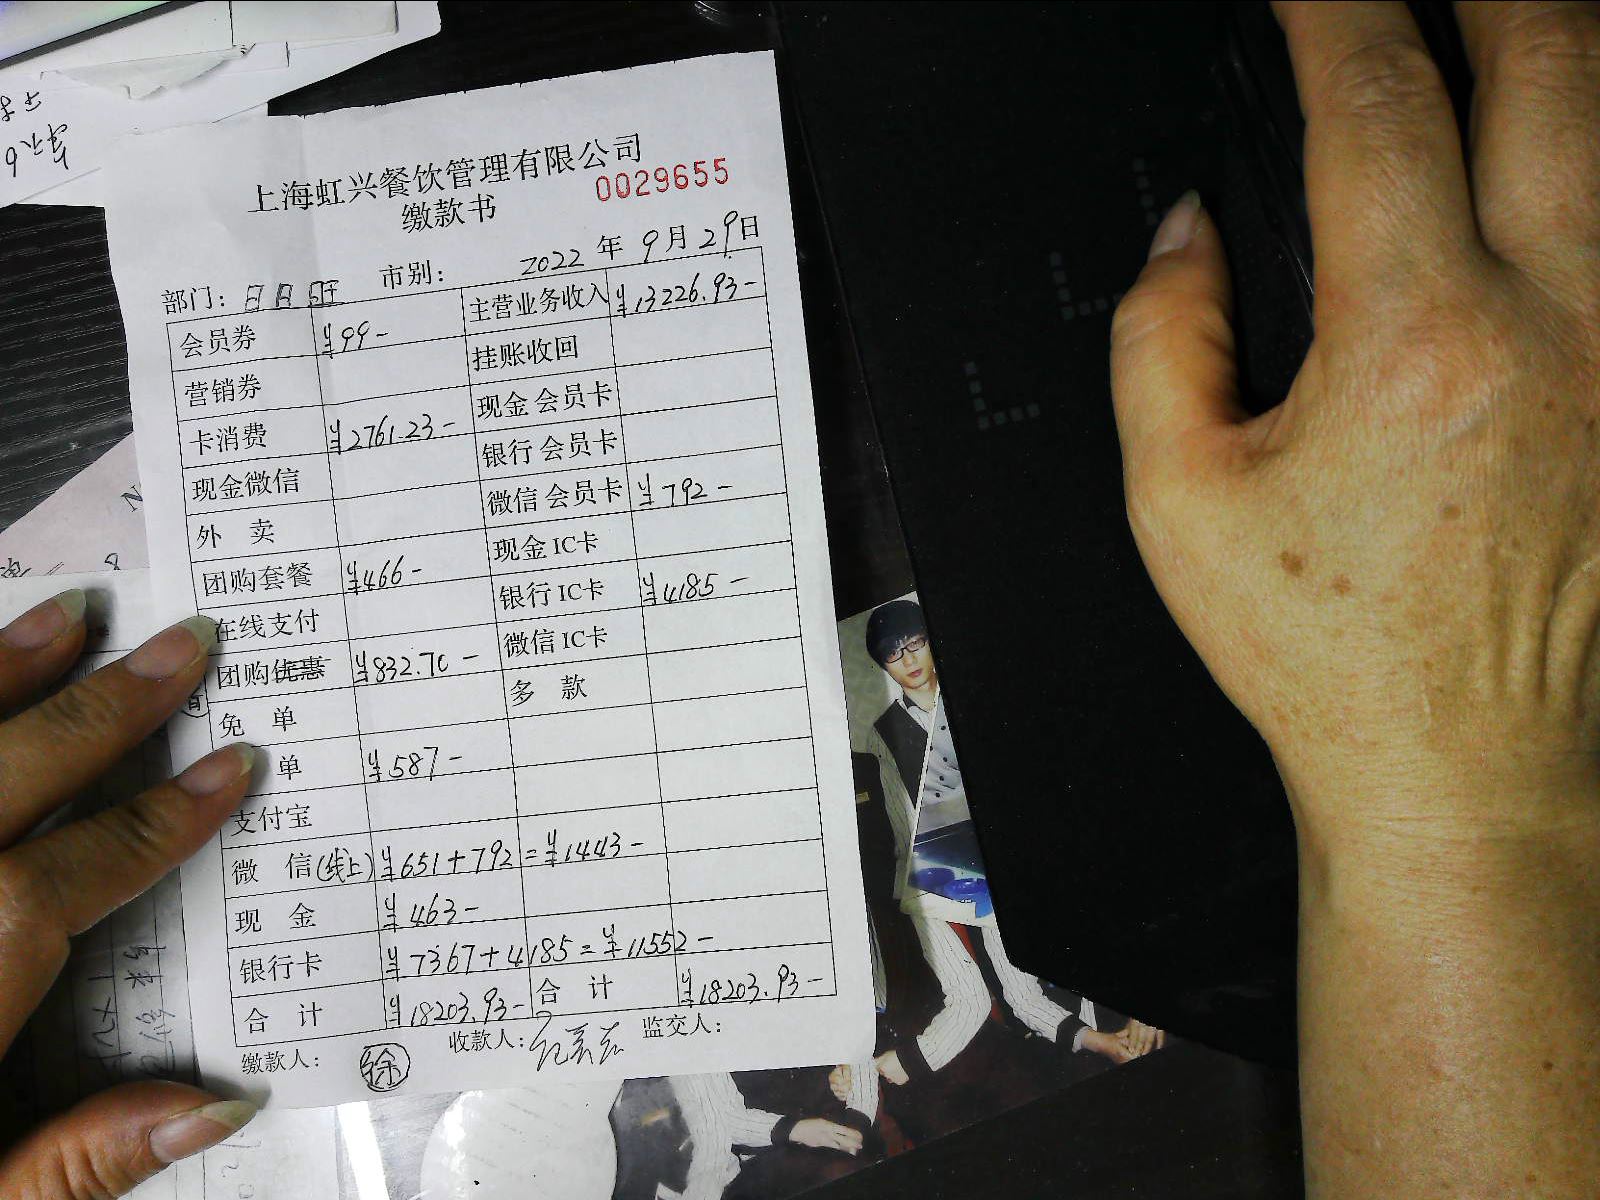 上海虹兴餐饮管理有限公司
0029655
缴款书
部门: 日月旺 市别: 2022 年 9 月 29 日
会员券 ¥99- 主营业务收入 ¥13226.93-
营销券 挂账收回
卡消费 ¥2761.23- 现金 会员卡
现金微信 银行 会员卡
外 卖 微信 会员卡 ¥792-
团购套餐 ¥466- 现金 IC卡
在线支付 银行 IC卡 ¥4185-
团购优惠 ¥832.70- 微信 IC卡
免 单 多 款
单 ¥587-
支付宝
微 信(线上) ¥651+792=¥1443-
现 金 ¥463-
银行卡 ¥7367+4185=¥11552-
合 计 ¥18203.93- 合 计 ¥18203.93-
缴款人: 徐 收款人: 监交人: